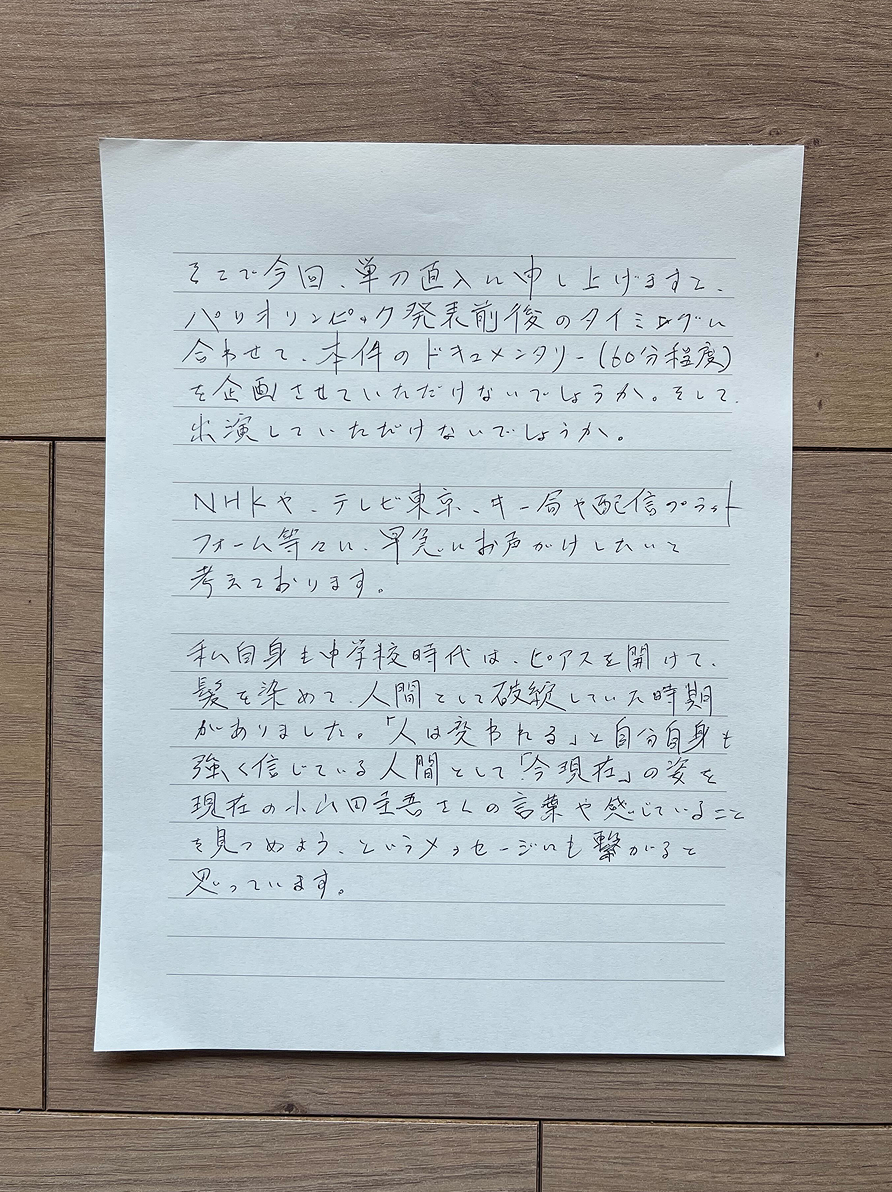 そこで今回、単刀直入に申し上げますと、
パリオリンピック発表前後のタイミングに
合わせて、本件のドキュメンタリー(60分程度)
を企画させていただけないでしょうか。そして、
出演していただけないでしょうか。
NHKや、テレビ東京、キー局や配信プラット
フォーム等々に、早急にお声がけしたいと
考えております。
私自身も中学校時代は、ピアスを開けて、
髪を染めて、人間として破綻していた時期
がありました。「人は変われる」と自分自身も
強く信じている人間として「今現在」の姿を
現在の小山田圭吾さんの言葉や感じていること
を見つめよう、というメッセージにも繋がると
思っています。